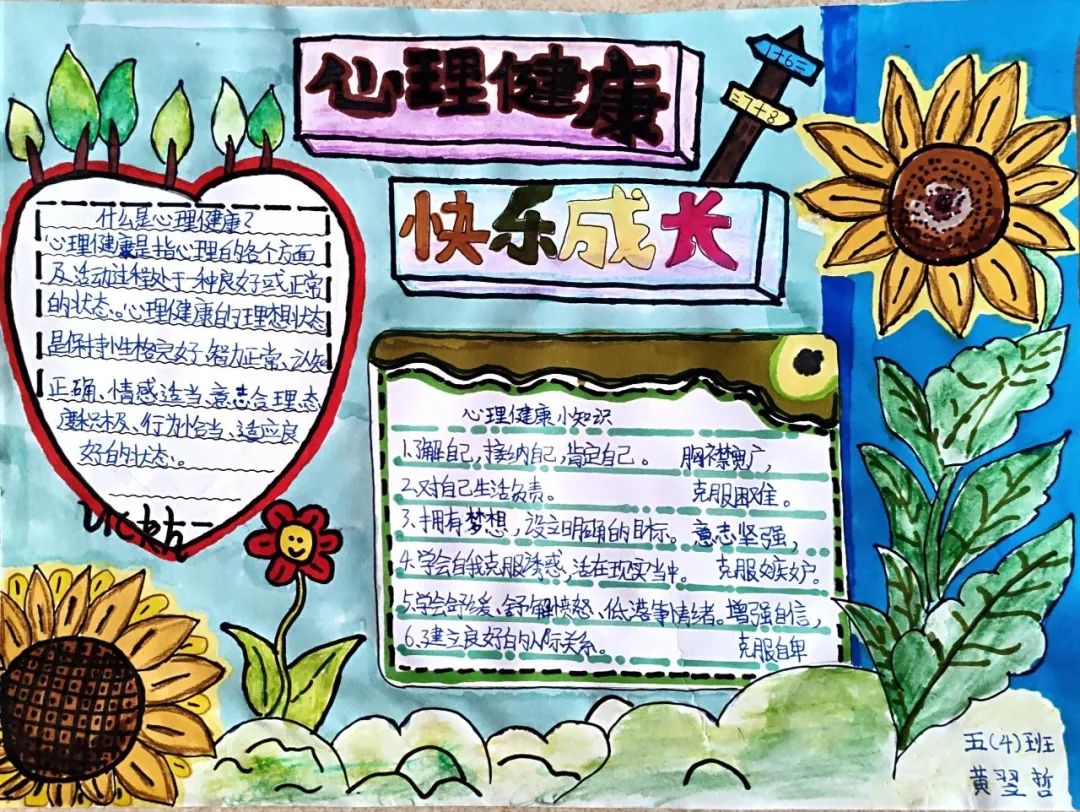 心理健康
1+6=
=7+8
快乐成长
什么是心理健康?
心理健康是指心理的各个方面
及活动过程处于一种良好或正常
的状态。心理健康的理想状态
是保持性格完好、智力正常、认知
正确、情感适当、意志合理、态
度积极、行为恰当、适应良
好的状态。
心理健康小知识
1.了解自己,接纳自己,肯定自己。 胸襟宽广,
2.对自己生活负责。 克服困难。
3.拥有梦想,设立明确的目标。 意志坚强,
4.学会自我克服诱惑,活在现实当中。 克服嫉妒。
5.学会舒缓、舒解愤怒、低落等情绪。增强自信,
6.建立良好的人际关系。 克服自卑
五(4)班
黄翌哲